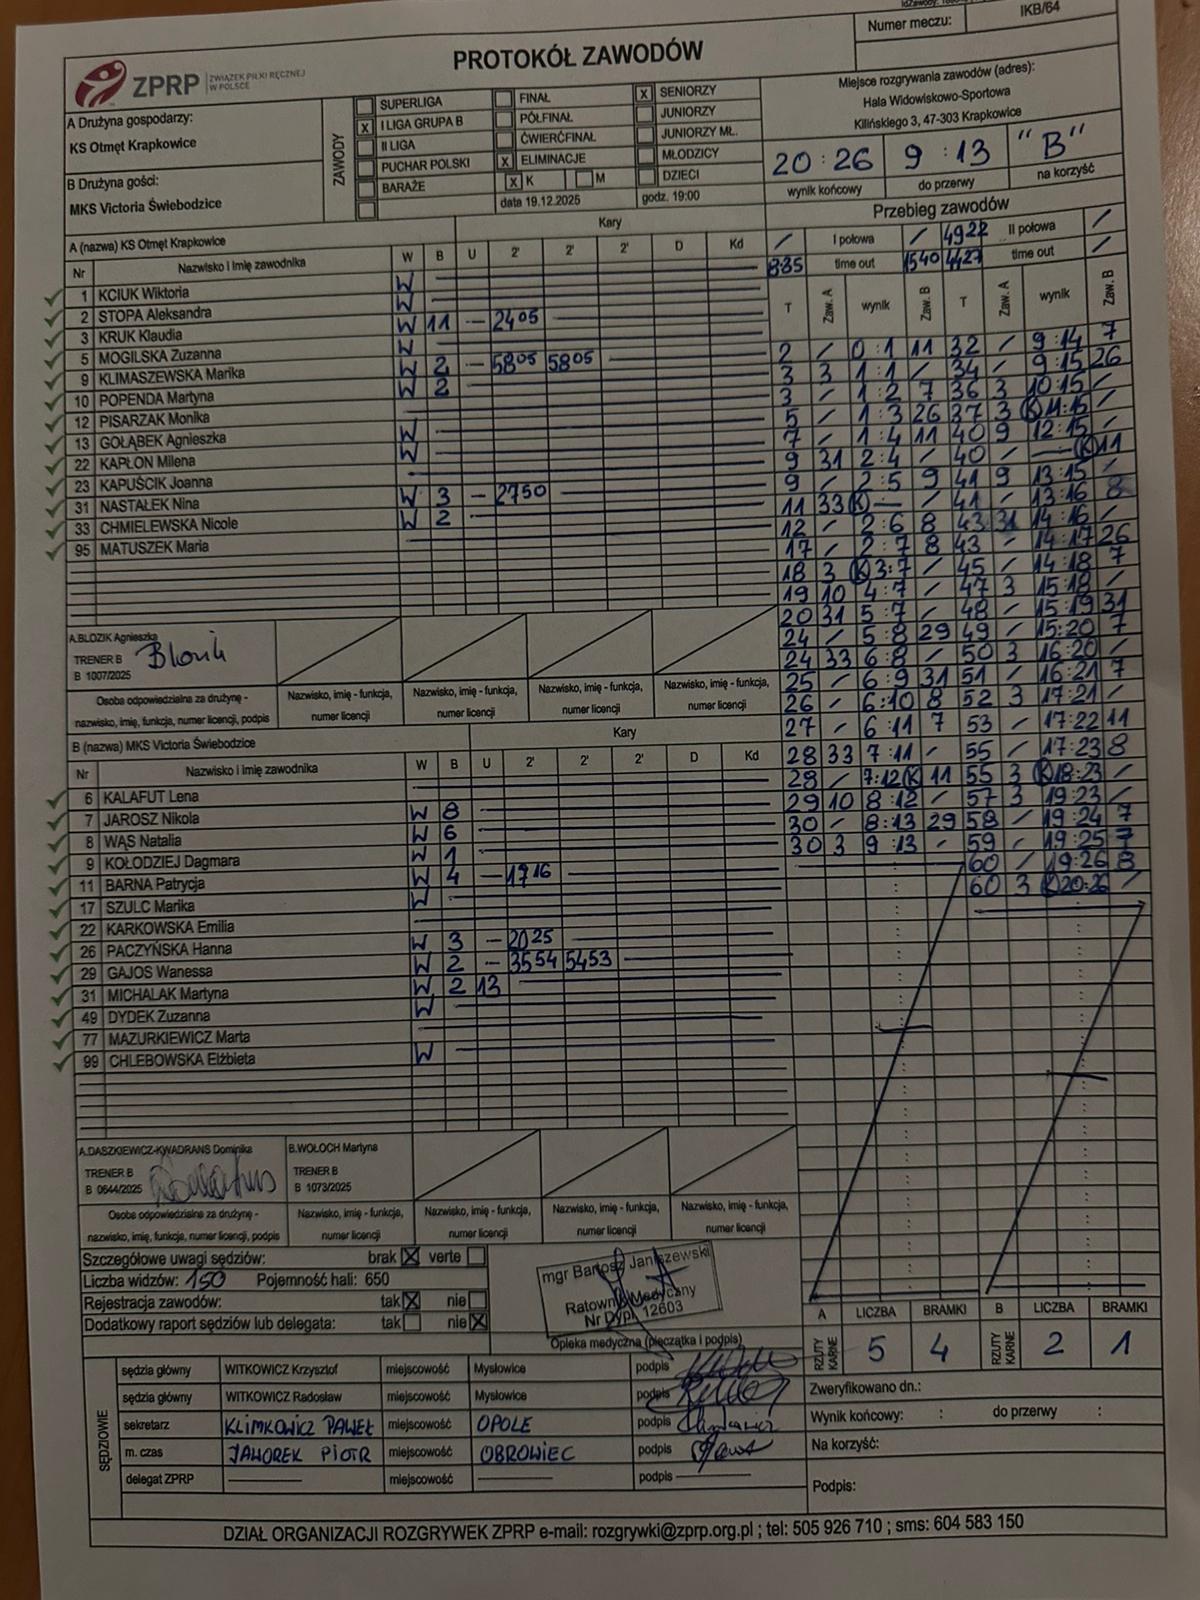 Numer meczu: IKB/64
PROTOKÓŁ ZAWODÓW
ZPRP ZWIĄZEK PIŁKI RĘCZNEJ W POLSCE
A Drużyna gospodarzy:
KS Otmęt Krapkowice
B Drużyna gości:
MKS Victoria Świebodzice
ZAWODY
SUPERLIGA
X I LIGA GRUPA B
II LIGA
PUCHAR POLSKI
BARAŻE
FINAŁ
PÓŁFINAŁ
ĆWIERĆFINAŁ
X ELIMINACJE
X K M
data 19.12.2025
X SENIORZY
JUNIORZY
JUNIORZY MŁ.
MŁODZICY
DZIECI
godz. 19:00
Miejsce rozgrywania zawodów (adres):
Hala Widowiskowo-Sportowa
Kilińskiego 3, 47-303 Krapkowice
20 : 26 9 : 13 "B"
wynik końcowy do przerwy na korzyść
Przebieg zawodów
/ I połowa / 4922 II połowa /
835 time out 1540 4427 time out /
T Zaw. A wynik Zaw. B T Zaw. A wynik Zaw. B
2 / 0:1 11 32 / 9:14 7
3 3 1:1 / 34 / 9:15 26
3 / 1:2 7 36 3 10:15 /
5 / 1:3 26 37 3 (K)11:15 /
7 / 1:4 11 40 9 12:15 /
9 31 2:4 / 40 / — (K)11
9 / 2:5 9 41 9 13:15 /
11 33 (K) — / 41 / 13:16 8
12 / 2:6 8 43 31 14:16 /
17 / 2:7 8 43 / 14:17 26
18 3 (K)3:7 / 45 / 14:18 7
19 10 4:7 / 47 3 15:18 /
20 31 5:7 / 48 / 15:19 31
24 / 5:8 29 49 / 15:20 7
24 33 6:8 / 50 3 16:20 /
25 / 6:9 31 51 / 16:21 7
26 / 6:10 8 52 3 17:21 /
27 / 6:11 7 53 / 17:22 11
28 33 7:11 / 55 / 17:23 8
28 / 7:12(K) 11 55 3 (K)18:23 /
29 10 8:12 / 57 3 19:23 /
30 / 8:13 29 58 / 19:24 7
30 3 9:13 / 59 / 19:25 7
60 / 19:26 8
60 3 (K)20:26 /
A (nazwa) KS Otmęt Krapkowice Kary
Nr Nazwisko i imię zawodnika W B U 2' 2' 2' D Kd
1 KCIUK Wiktoria W
2 STOPA Aleksandra W
3 KRUK Klaudia W 11 — 2405
5 MOGILSKA Zuzanna W
9 KLIMASZEWSKA Marika W 2 — 5805 5805
10 POPENDA Martyna W 2
12 PISARZAK Monika
13 GOŁĄBEK Agnieszka W
22 KAPŁON Milena W
23 KAPUŚCIK Joanna
31 NASTAŁEK Nina W 3 — 2750
33 CHMIELEWSKA Nicole W 2
95 MATUSZEK Maria
A.BLOZIK Agnieszka
TRENER B
B 1007/2025
Osoba odpowiedzialna za drużynę - nazwisko, imię, funkcja, numer licencji, podpis
Nazwisko, imię - funkcja, numer licencji
Nazwisko, imię - funkcja, numer licencji
Nazwisko, imię - funkcja, numer licencji
Nazwisko, imię - funkcja, numer licencji
B (nazwa) MKS Victoria Świebodzice Kary
Nr Nazwisko i imię zawodnika W B U 2' 2' 2' D Kd
6 KALAFUT Lena
7 JAROSZ Nikola W 8
8 WĄS Natalia W 6
9 KOŁODZIEJ Dagmara W 1
11 BARNA Patrycja W 4 — 1716
17 SZULC Marika W
22 KARKOWSKA Emilia
26 PACZYŃSKA Hanna W 3 — 2025
29 GAJOS Wanessa W 2 — 3554 5453
31 MICHALAK Martyna W 2 13
49 DYDEK Zuzanna W
77 MAZURKIEWICZ Marta
99 CHLEBOWSKA Elżbieta W
A.DASZKIEWICZ-KWADRANS Dominika
TRENER B
B 0644/2025
B.WOŁOCH Martyna
TRENER B
B 1073/2025
Osoba odpowiedzialna za drużynę - nazwisko, imię, funkcja, numer licencji, podpis
Nazwisko, imię - funkcja, numer licencji
Nazwisko, imię - funkcja, numer licencji
Nazwisko, imię - funkcja, numer licencji
Nazwisko, imię - funkcja, numer licencji
Szczegółowe uwagi sędziów: brak X verte
Liczba widzów: 150 Pojemność hali: 650
Rejestracja zawodów: tak X nie
Dodatkowy raport sędziów lub delegata: tak nie X
mgr Bartosz Janiszewski
Ratownik Medyczny
Nr Dypl. 12603
Opieka medyczna (pieczątka i podpis)
A LICZBA BRAMKI B LICZBA BRAMKI
RZUTY KARNE 5 4 RZUTY KARNE 2 1
SĘDZIOWIE
sędzia główny WITKOWICZ Krzysztof miejscowość Mysłowice podpis
sędzia główny WITKOWICZ Radosław miejscowość Mysłowice podpis
sekretarz KLIMKOWICZ PAWEŁ miejscowość OPOLE podpis
m. czas JAWOREK PIOTR miejscowość OBROWIEC podpis
delegat ZPRP miejscowość podpis
Zweryfikowano dn.:
Wynik końcowy: : do przerwy :
Na korzyść:
Podpis:
DZIAŁ ORGANIZACJI ROZGRYWEK ZPRP e-mail: rozgrywki@zprp.org.pl ; tel: 505 926 710 ; sms: 604 583 150